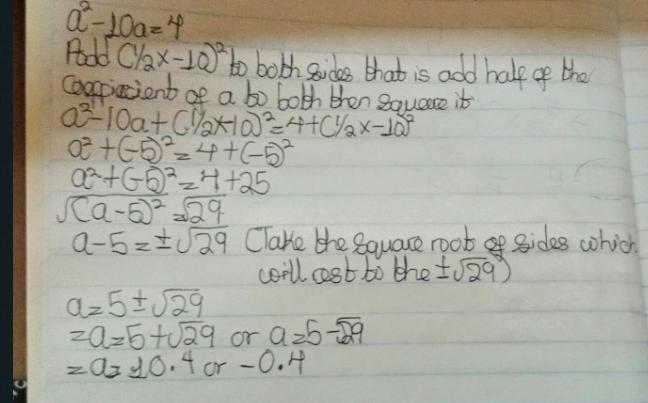 a²-10a=4
Add (1/2x-10)² to both sides that is add half of the
Coefficient of a to both then square it
a²-10a+(1/2x-10)²=4+(1/2x-10)²
a²+(-5)²=4+(-5)²
a²+(-5)²=4+25
√(a-5)²=√29
a-5=±√29 (Take the square root of sides which
will to the ±√29)
a=5±√29
=a=5+√29 or a=5-√29
=a=10.4 or -0.4